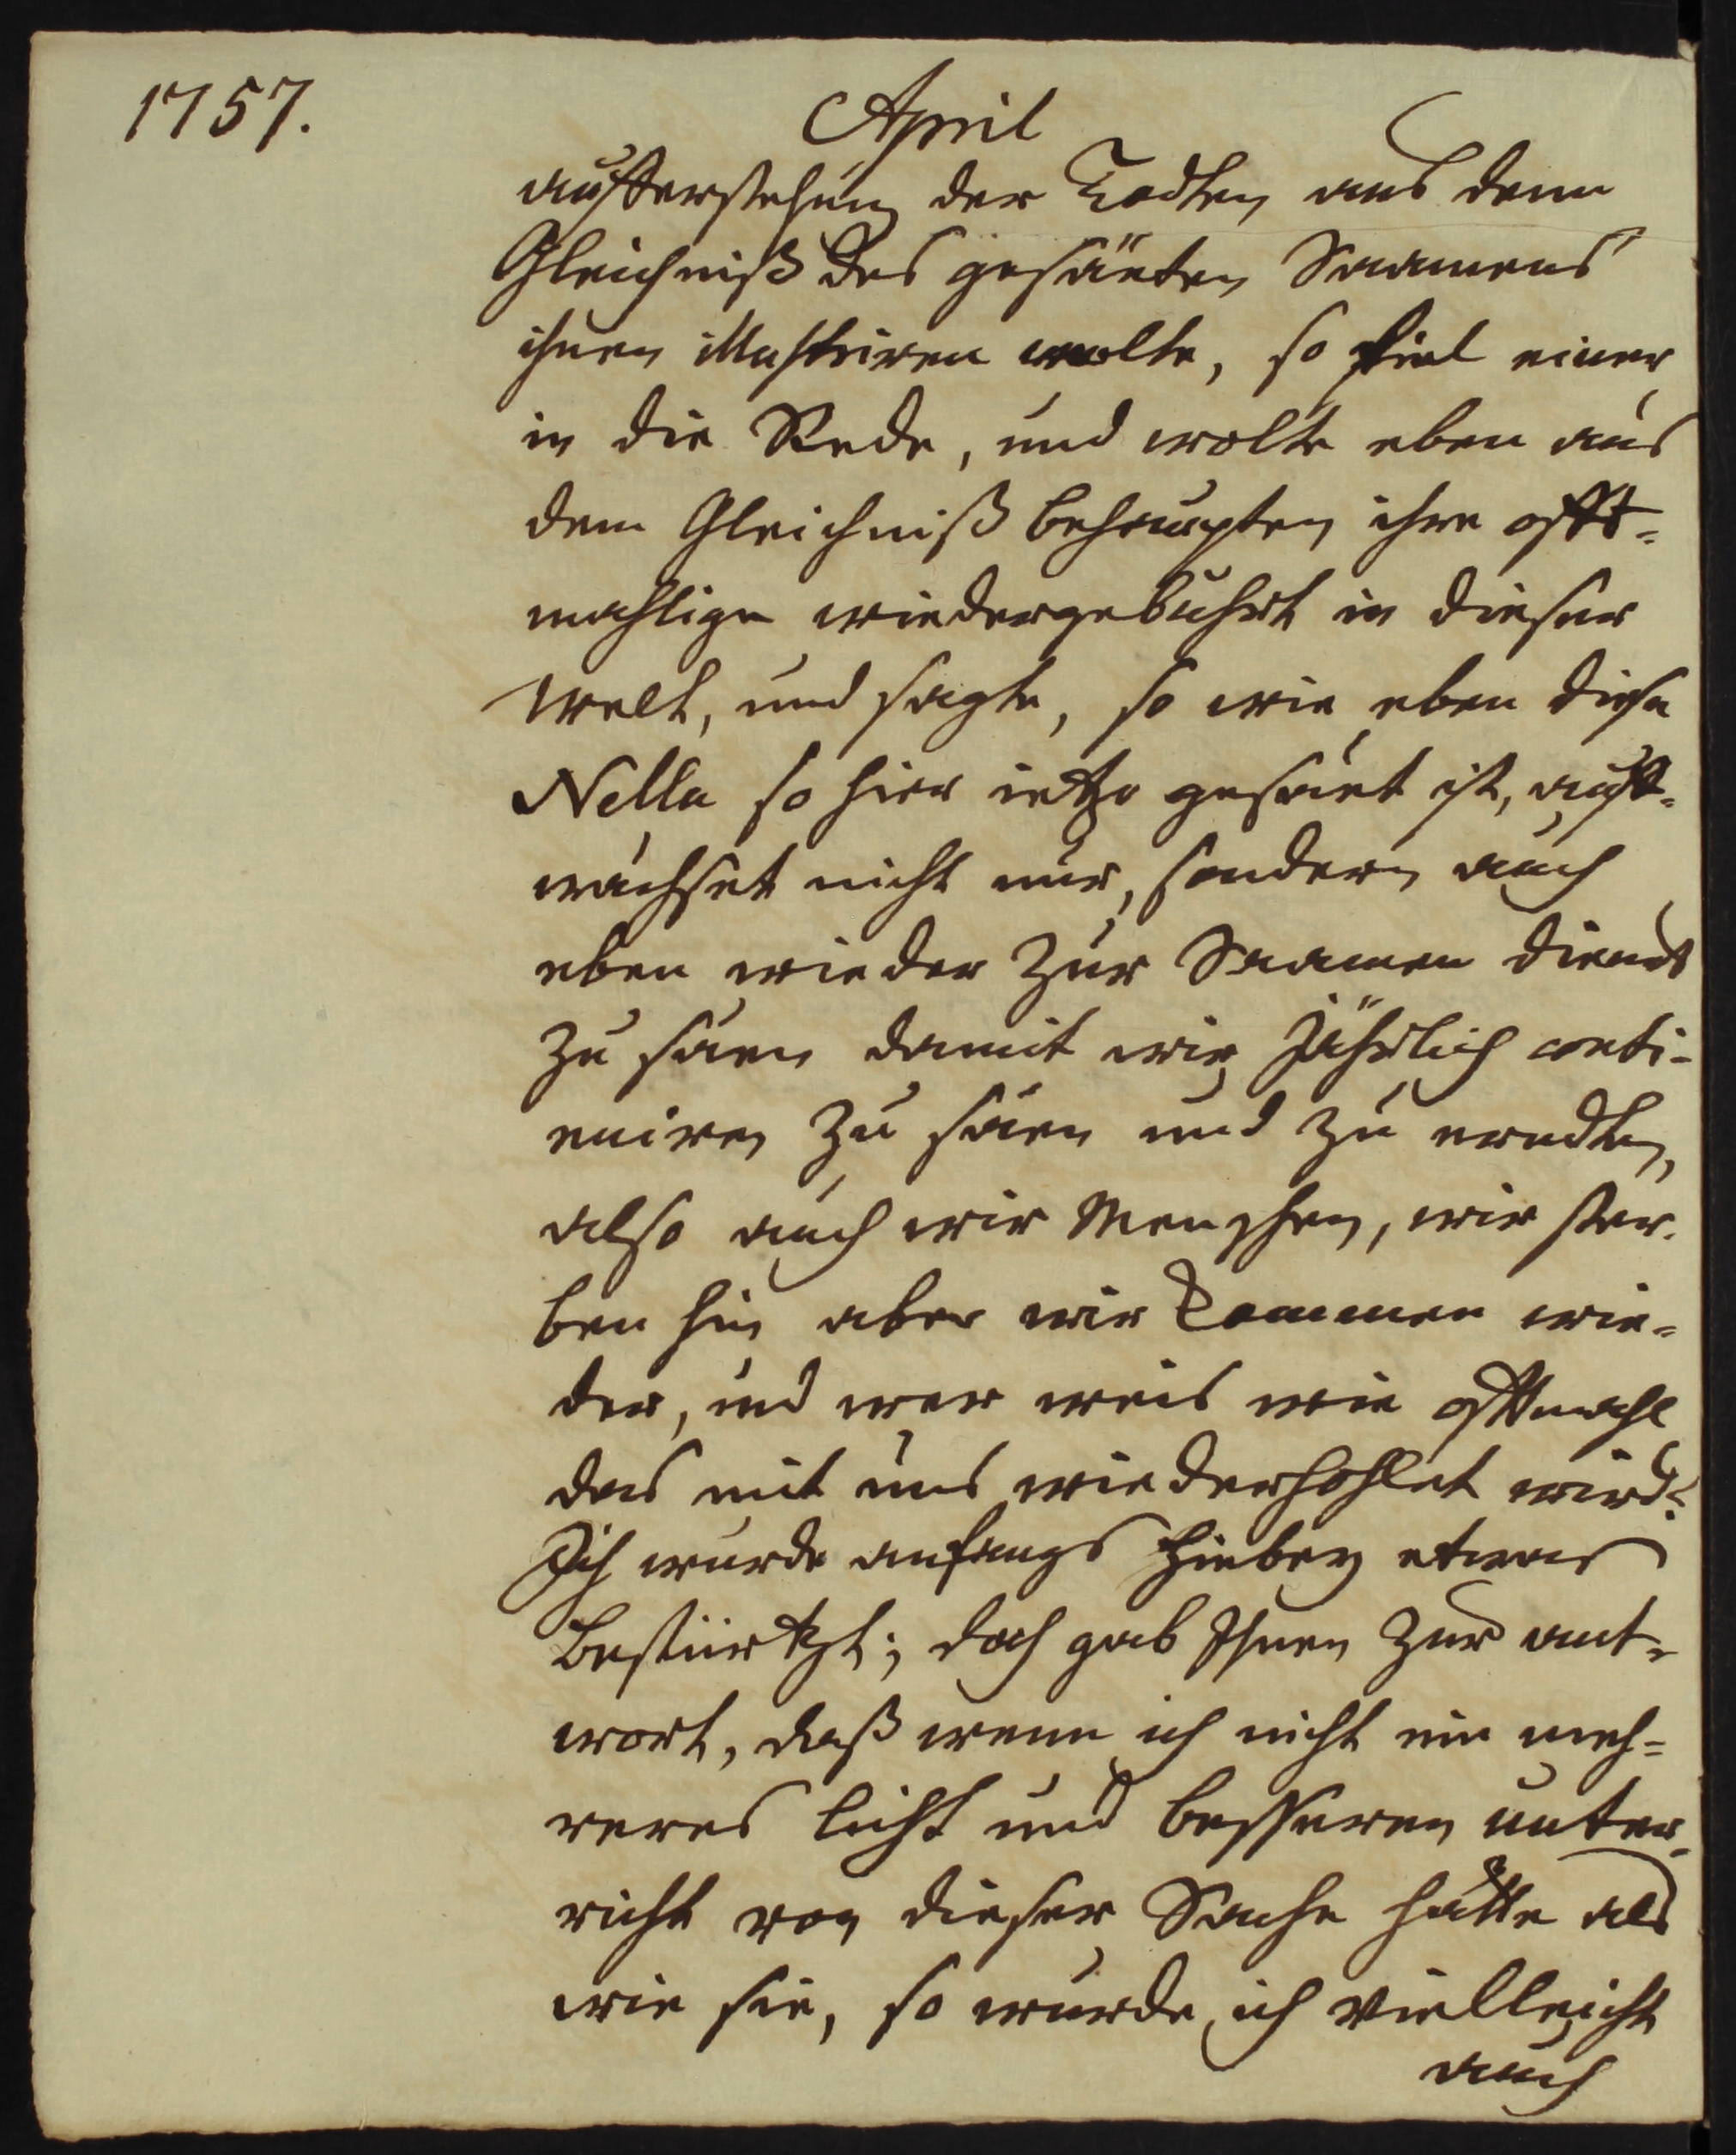 1757.
April
aufferstehung der Todten aus dem
Gleichniß des gesäeten Saamens
ihnen illustriren wolte, so fiel einer
in die Rede, und wolte eben aus
dem Gleichniß behaupten ihre offt-
mahlige wiedergebuhrt in dieser
Welt, und sagte, so wie eben diese
Nellu so hier ietzo gesäet ist, auff-
wächset nicht nur, sondern auch
eben wieder zur Saamen dienet
zu säen damit wir Jährlich conti-
nuiren zu säen und zu erndten,
also auch wir Menschen, wir ster-
ben hin aber wir kommen wie-
der, und wer weis wie offtmahl
das mit uns wiederhohlet wird?
Ich wurde anfangs hiebey etwas
bestürtzt; doch gab Ihnen zur ant-
wort, daß wenn ich nicht ein meh-
reres licht und besseren unter-
richt von dieser Sache hätte als
wie sie, so wurde ich vielleicht
auch